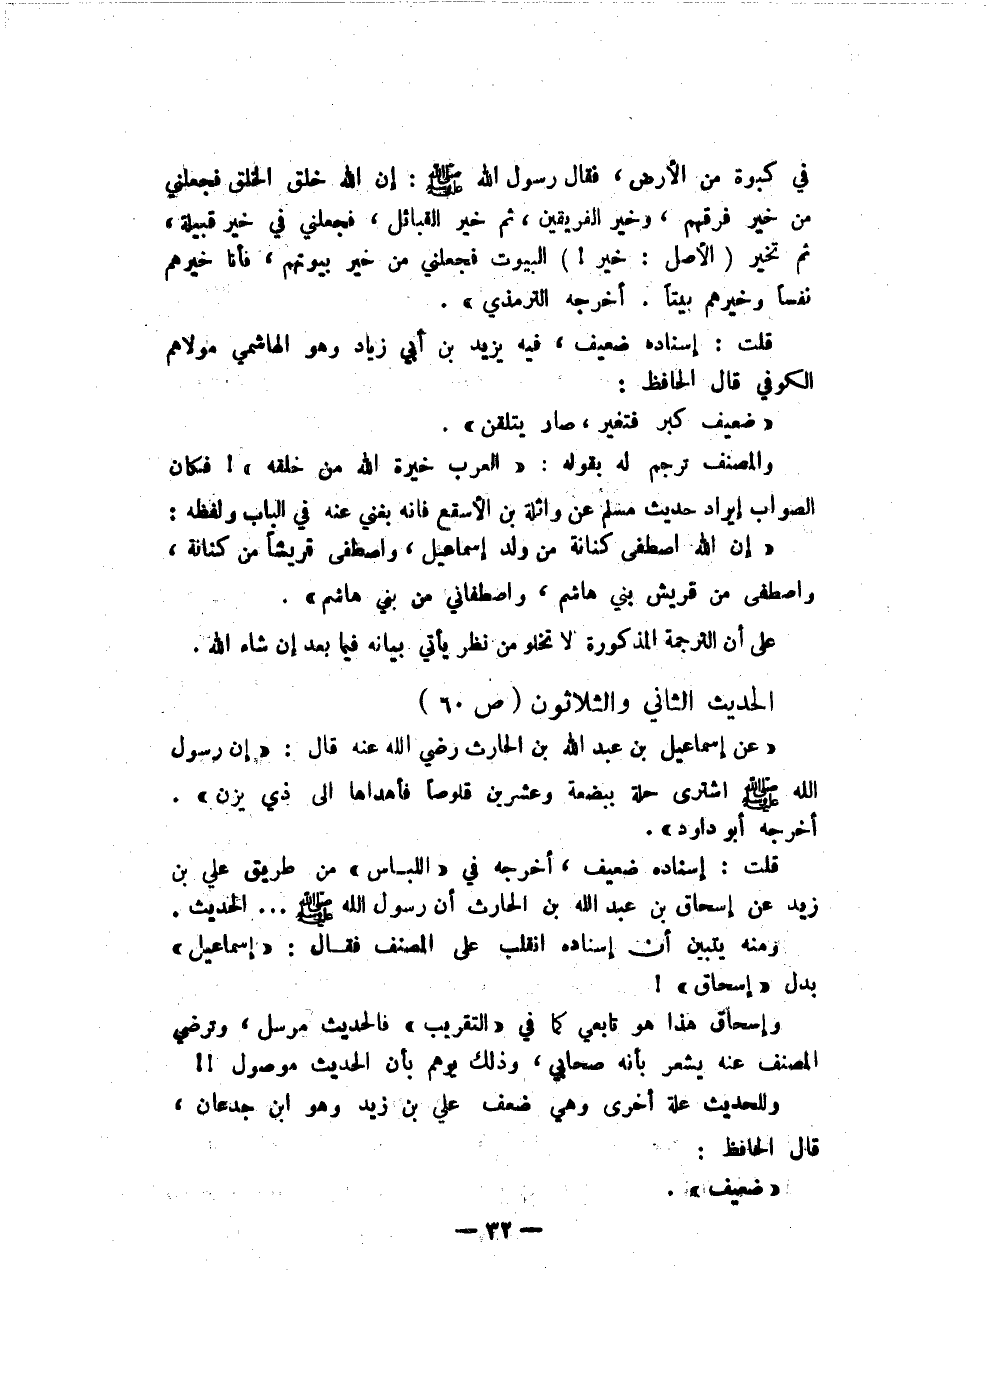 في كبوة من الأرض ، فقال رسول الله ﷺ : إن الله خلق الخلق فجعلني
من خير فرقهم ، وخير الفريقين ، ثم خير القبائل ، فجعلني في خير قبيلة ،
ثم تخير ( الأصل : خير ! ) البيوت فجعلني من خير بيوتهم ، فأنا خيرهم
نفساً وخيرهم بيتاً . أخرجه الترمذي » .
قلت : إسناده ضعيف ، فيه يزيد بن أبي زياد وهو الهاشمي مولاهم
الكوفي قال الحافظ :
« ضعيف كبر فتغير ، صار يتلقن » .
والمصنف ترجم له بقوله : « العرب خيرة الله من خلقه » ! فكان
الصواب إيراد حديث مسلم عن واثلة بن الأسقع فانه يغني عنه في الباب ولفظه :
« إن الله اصطفى كنانة من ولد إسماعيل ، واصطفى قريشاً من كنانة ،
واصطفى من قريش بني هاشم ، واصطفاني من بني هاشم » .
على أن الترجمة المذكورة لا تخلو من نظر يأتي بيانه فيما بعد إن شاء الله .
الحديث الثاني والثلاثون ( ص ٦٠ )
« عن إسماعيل بن عبد الله بن الحارث رضي الله عنه قال : « إن رسول
الله ﷺ اشترى حلة ببضعة وعشرين قلوصاً فأهداها الى ذي يزن » .
أخرجه أبو داود » .
قلت : إسناده ضعيف ، أخرجه في « اللبـاس » من طريق علي بن
زيد عن إسحاق بن عبد الله بن الحارث أن رسول الله ﷺ ... الحديث .
ومنه يتبين أن إسناده انقلب على المصنف فقـال : « إسماعيل »
بدل « إسحاق » !
وإسحاق هذا هو تابعي كما في « التقريب » فالحديث مرسل ، وترضي
المصنف عنه يشعر بأنه صحابي ، وذلك يوهم بأن الحديث موصول !!
وللحديث علة أخرى وهي ضعف علي بن زيد وهو ابن جدعان ،
قال الحافظ :
« ضعيف » .
— ٣٢ —